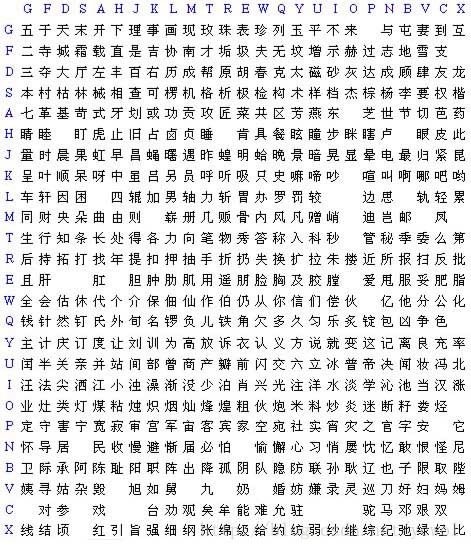 G F D S A H J K L M T R E W Q Y U I O P N B V C X
G 五于天末开下理事画现玫珠表珍列玉平不来 与屯妻到互
F 二寺城霜载直进吉协南才垢圾夫无坟增示赫过志地雪支
D 三夺大厅左丰百右历面帮原胡春克太磁砂灰达成顾肆友龙
S 本村枯林械相查可楞机格析极检构术样档杰棕杨李要权楷
A 七革基苛式牙划或功贡攻匠菜共区芳燕东 芝世节切芭药
H 睛睦 盯虎止旧占卤贞睡 肯具餐眩瞳步眯瞎卢 眼皮此
J 量时晨果虹早昌蝇曙遇昨蝗明蛤晚景暗晃显晕电最归紧昆
K 呈叶顺呆呀中虽吕另员呼听吸只史嘛啼吵 喧叫啊哪吧哟
L 车轩因困 四辊加男轴力斩胃办罗罚较 边思 轨轻累
M 同财央朵曲由则 崭册几贩骨内风凡赠峭 迪岂邮 凤
T 生行知条长处得各力向笔物秀答称入科秒 管秘季委么第
R 后持拓打找年提扣押抽手折扔失换扩拉朱搂近所报扫反批
E 且肝 肛 胆肿肋肌用遥朋脸胸及胶膛 爱甩服妥肥脂
W 全会估休代个介保佃仙作伯仍从你信们偿伙 亿他分公化
Q 钱针然钉氏外旬名锣负儿铁角欠多久匀乐炙锭包凶争色
Y 主计庆订度让刘训为高放诉衣认义方说就变这记离良充率
U 闰半关亲并站间部曾商产瓣前闪交六立冰普帝决闻妆冯北
I 汪法尖洒江小浊澡渐没少泊肖兴光注洋水淡学沁池当汉涨
O 业灶类灯煤粘烛炽烟灿烽煌粗伙炮米料炒炎迷断籽娄烃
P 定守害宁宽寂审宫军宙客宾家空宛社实宵灾之官字安 它
N 怀导居 民收慢避惭届必怕 愉懈心习悄屡忱忆敢恨怪尼
B 卫际承阿陈耻阳职阵出降孤阴队隐防联孙耿辽也子限取陛
V 姨寻姑杂毁 旭如舅 九 奶 婚妨嫌录灵巡刀好妇妈姆
C 对参 戏 台劝观矣牟能难允驻 驼马邓艰双
X 线结顷 红引旨强细纲张绵级给约纺弱纱继综纪弛绿经比